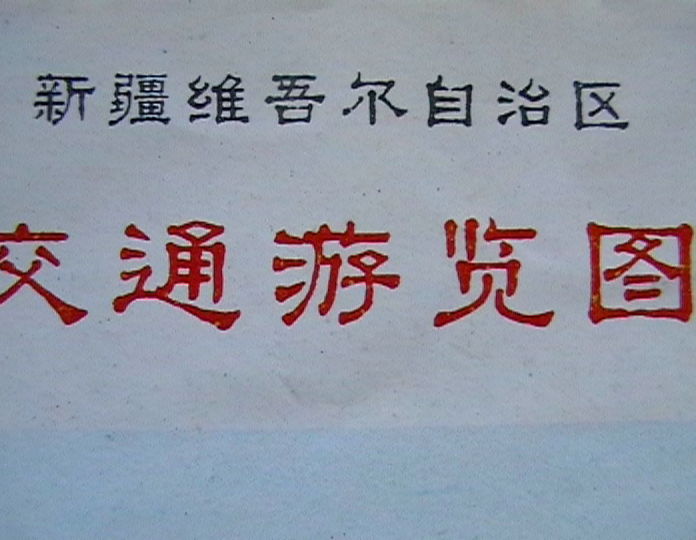 新疆维吾尔自治区
交通游览图